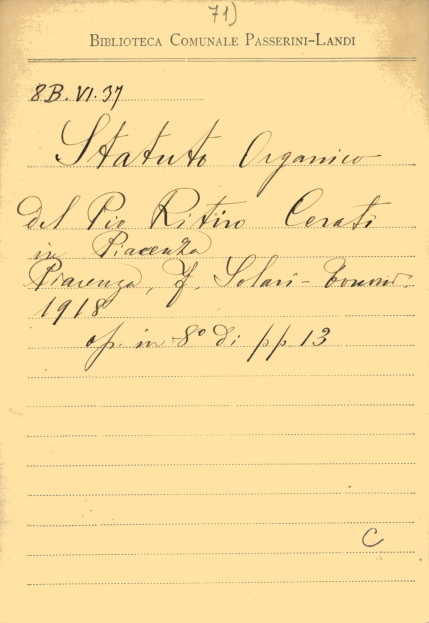 71)
BIBLIOTECA COMUNALE PASSERINI-LANDI
8B. VI. 37
Statuto Organico
del Pio Ritiro Cerati
in Piacenza
Piacenza, f. Solari-
1918
op. in 8º di pp 13
C